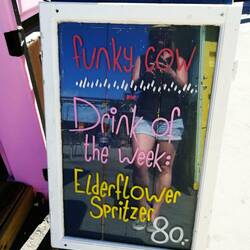 funky cow
Drink of
the week:
Elderflower
Spritzer
80.-